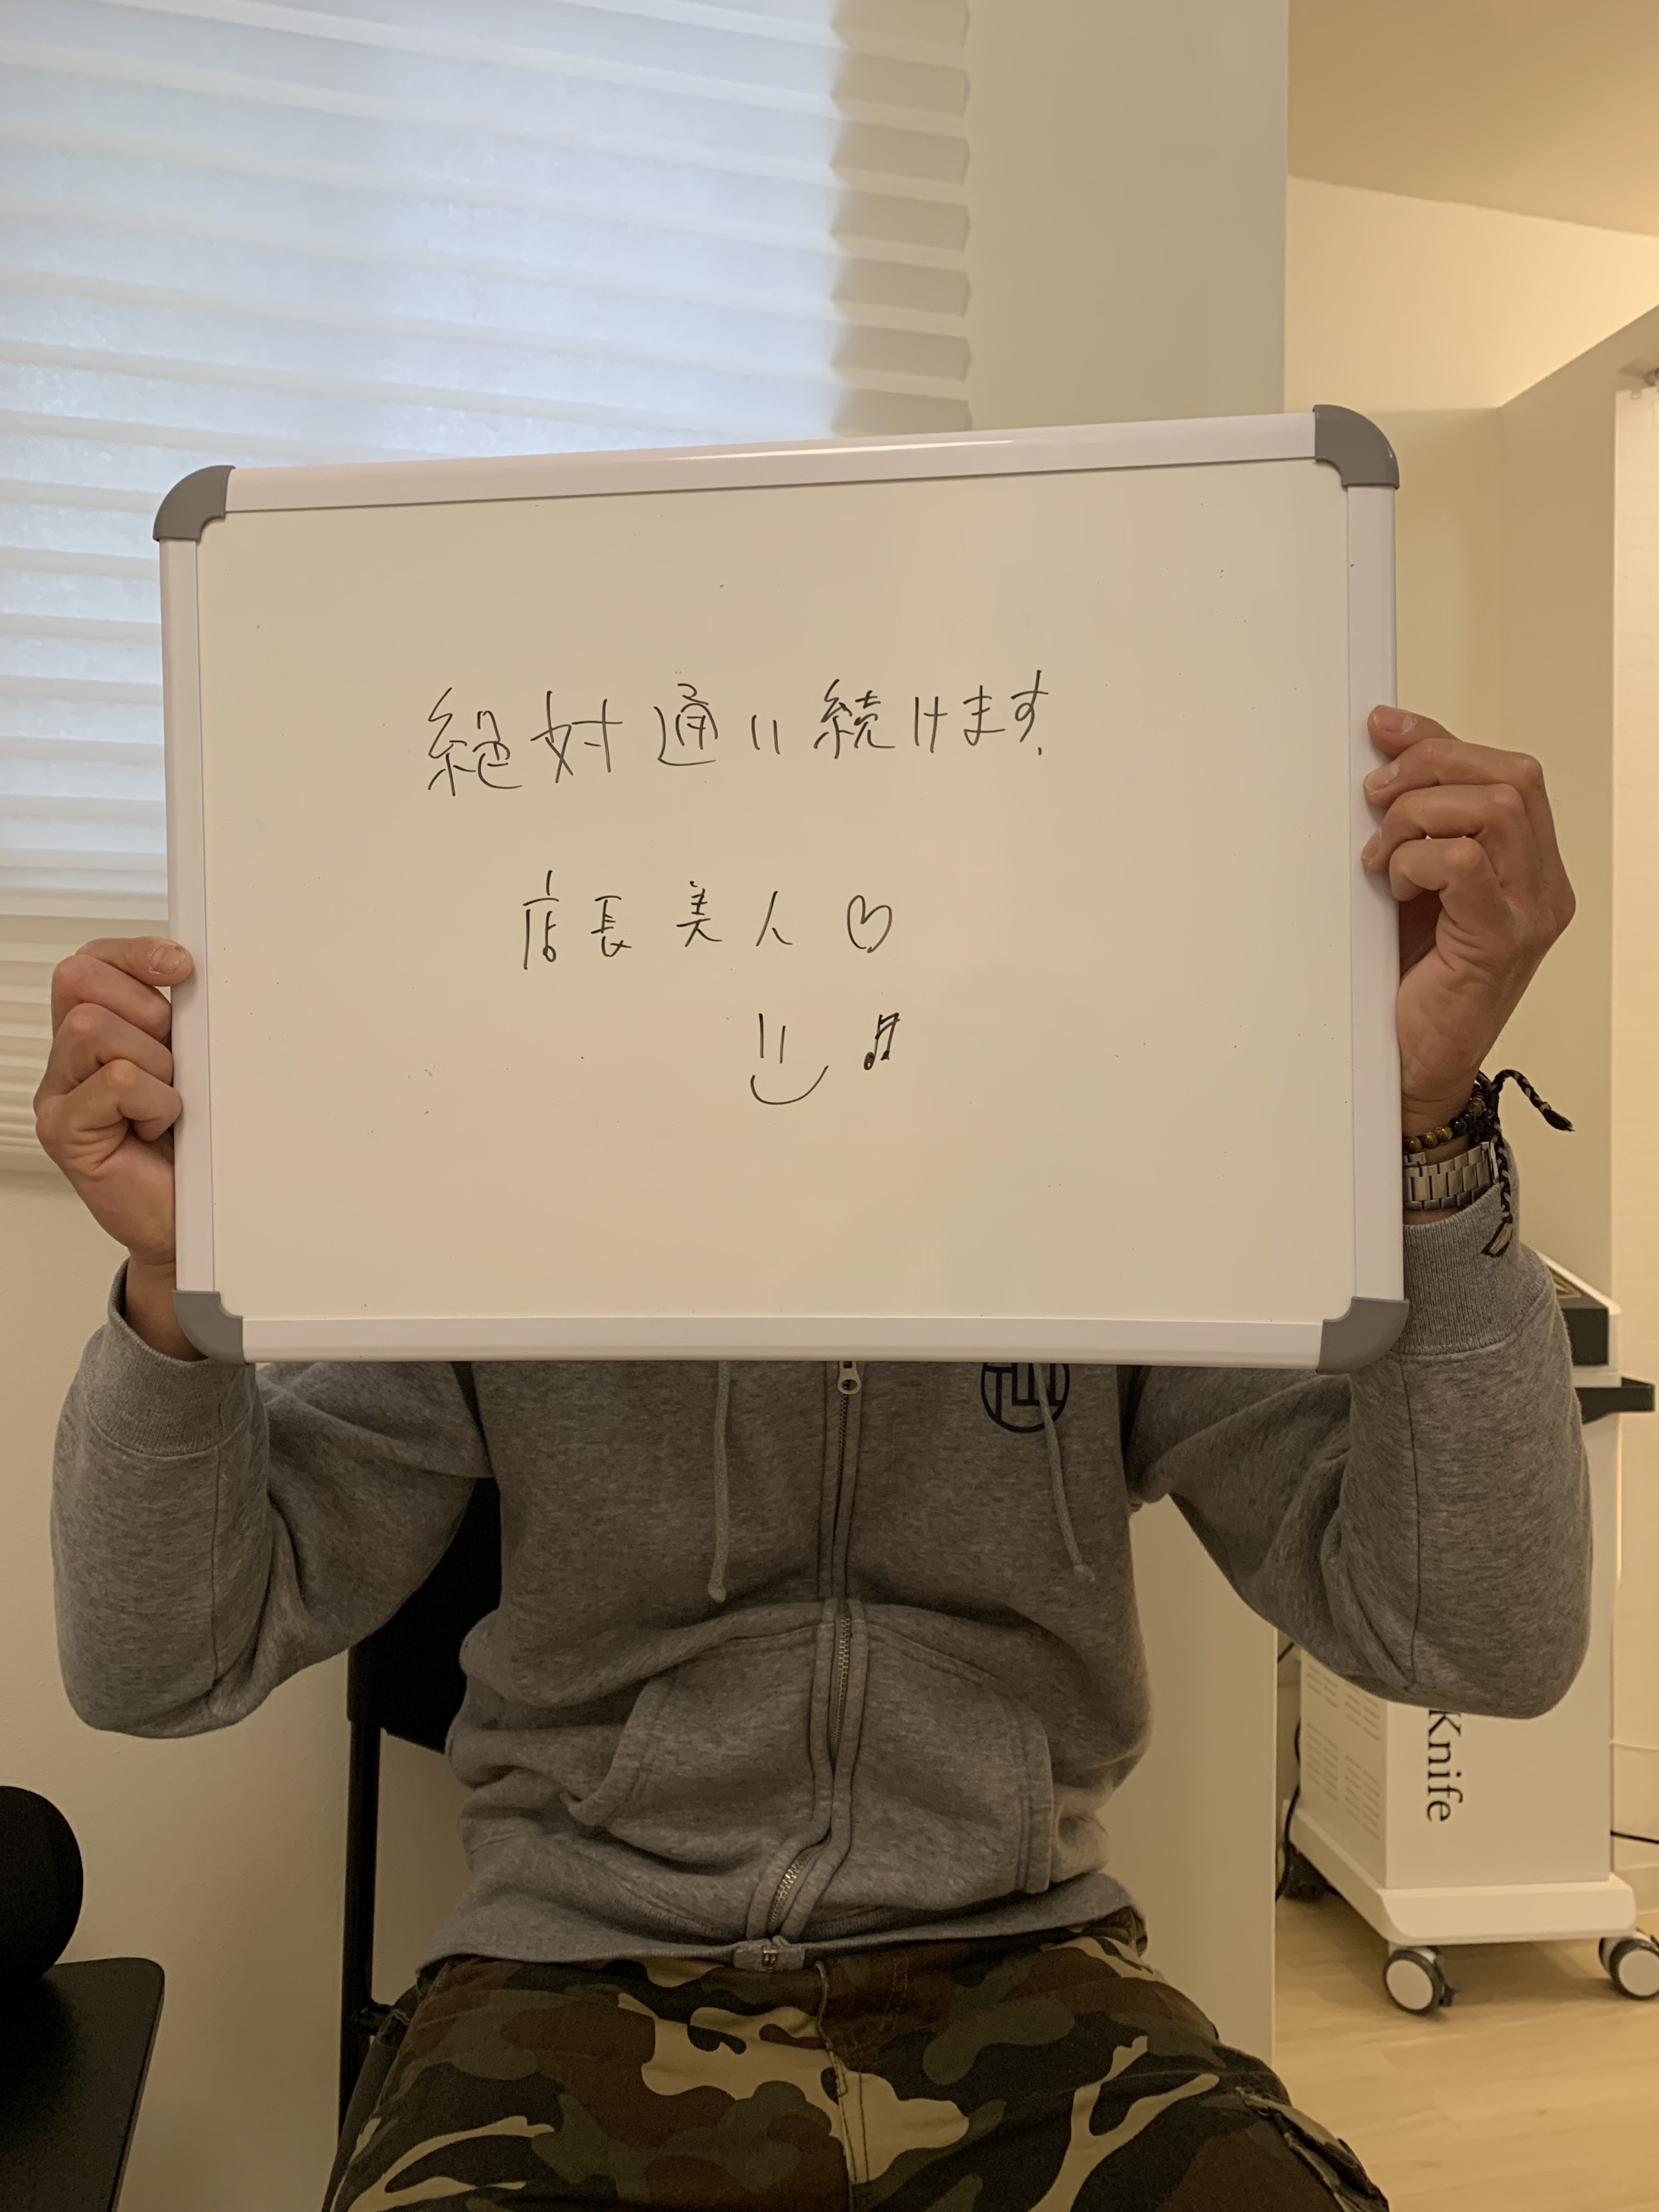 絶対通い続けます.
店長美人♡
♬
Knife